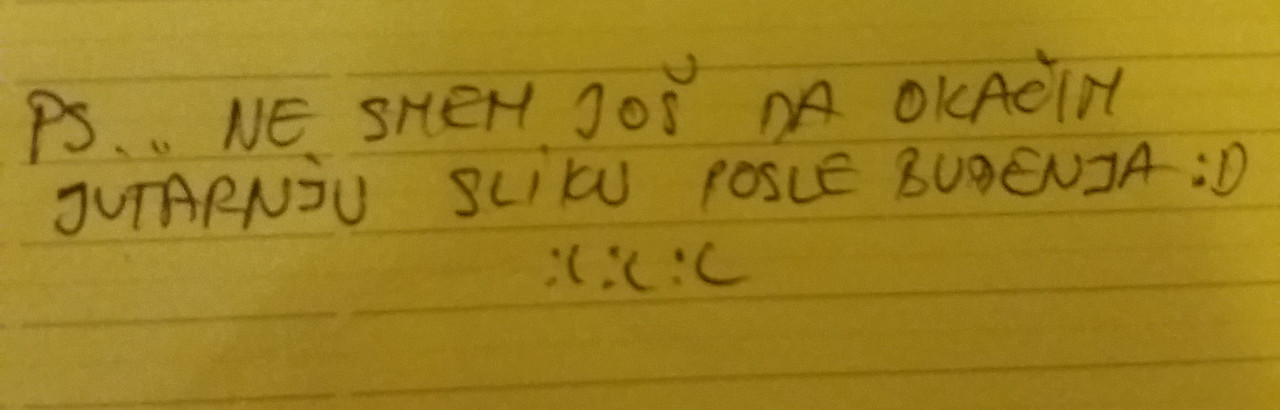 PS... NE SMEM JOŠ DA OKAČIM
JUTARNJU SLIKU POSLE BUĐENJA :D
:( :( :(